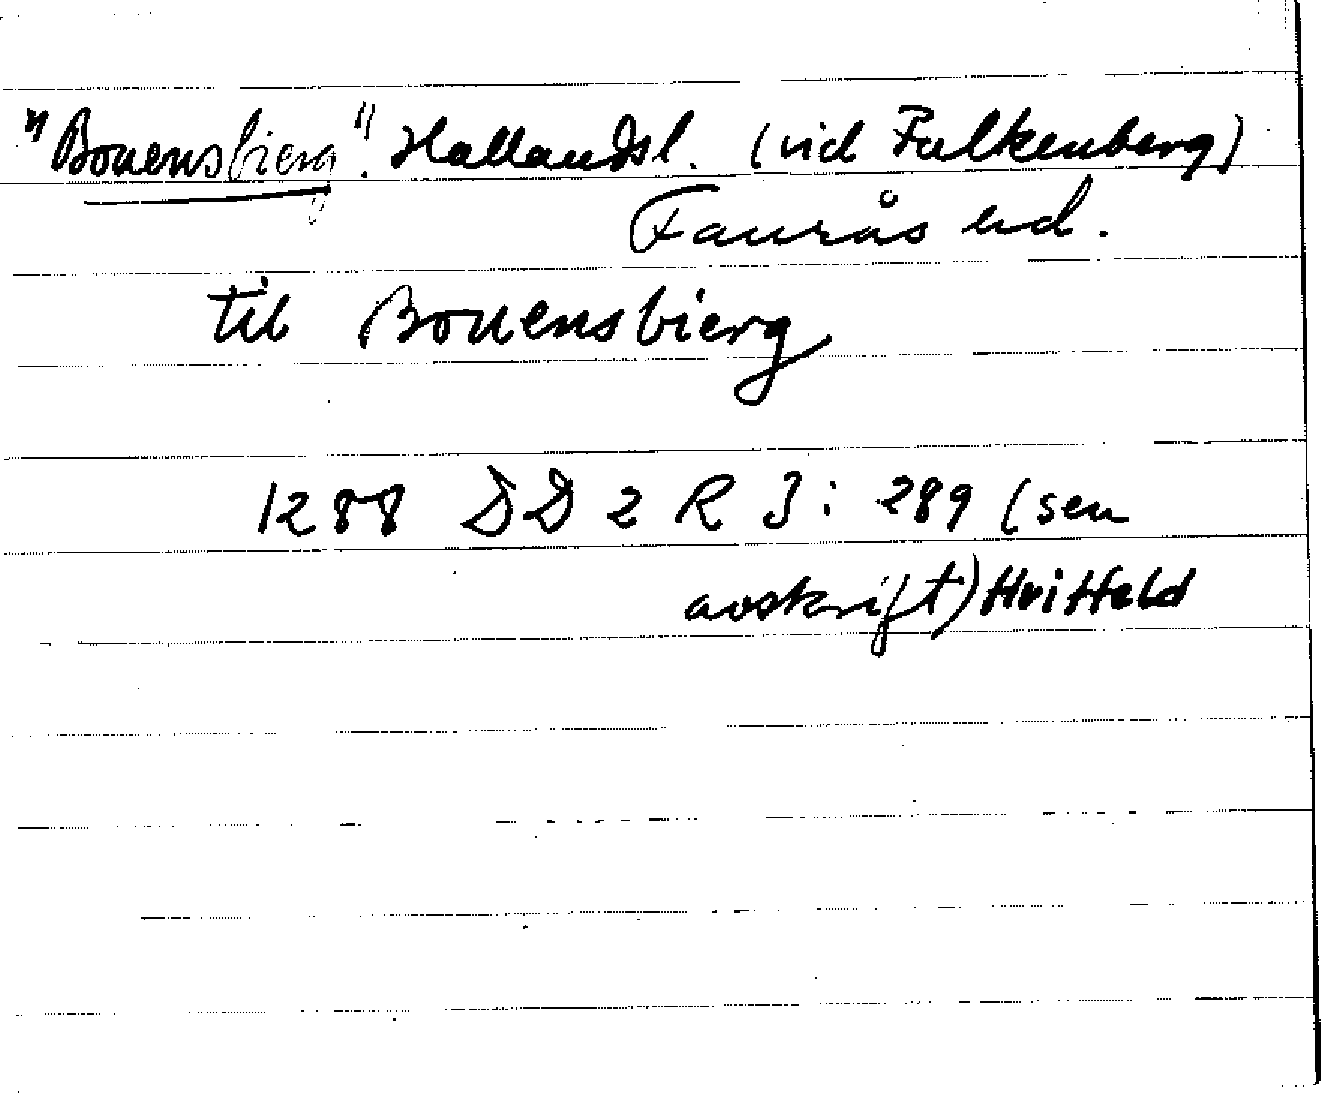 "Bouensbierg". Hallandsl. (vid Falkenberg)
Faurås hd.
til Bouensbierg
1288 DD 2 R 3: 289 (sen
avskrift) Hvitfeld